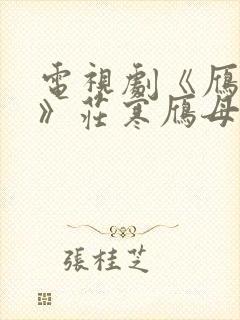 電視劇《鴈
》莊寒鴈母
張桂芝